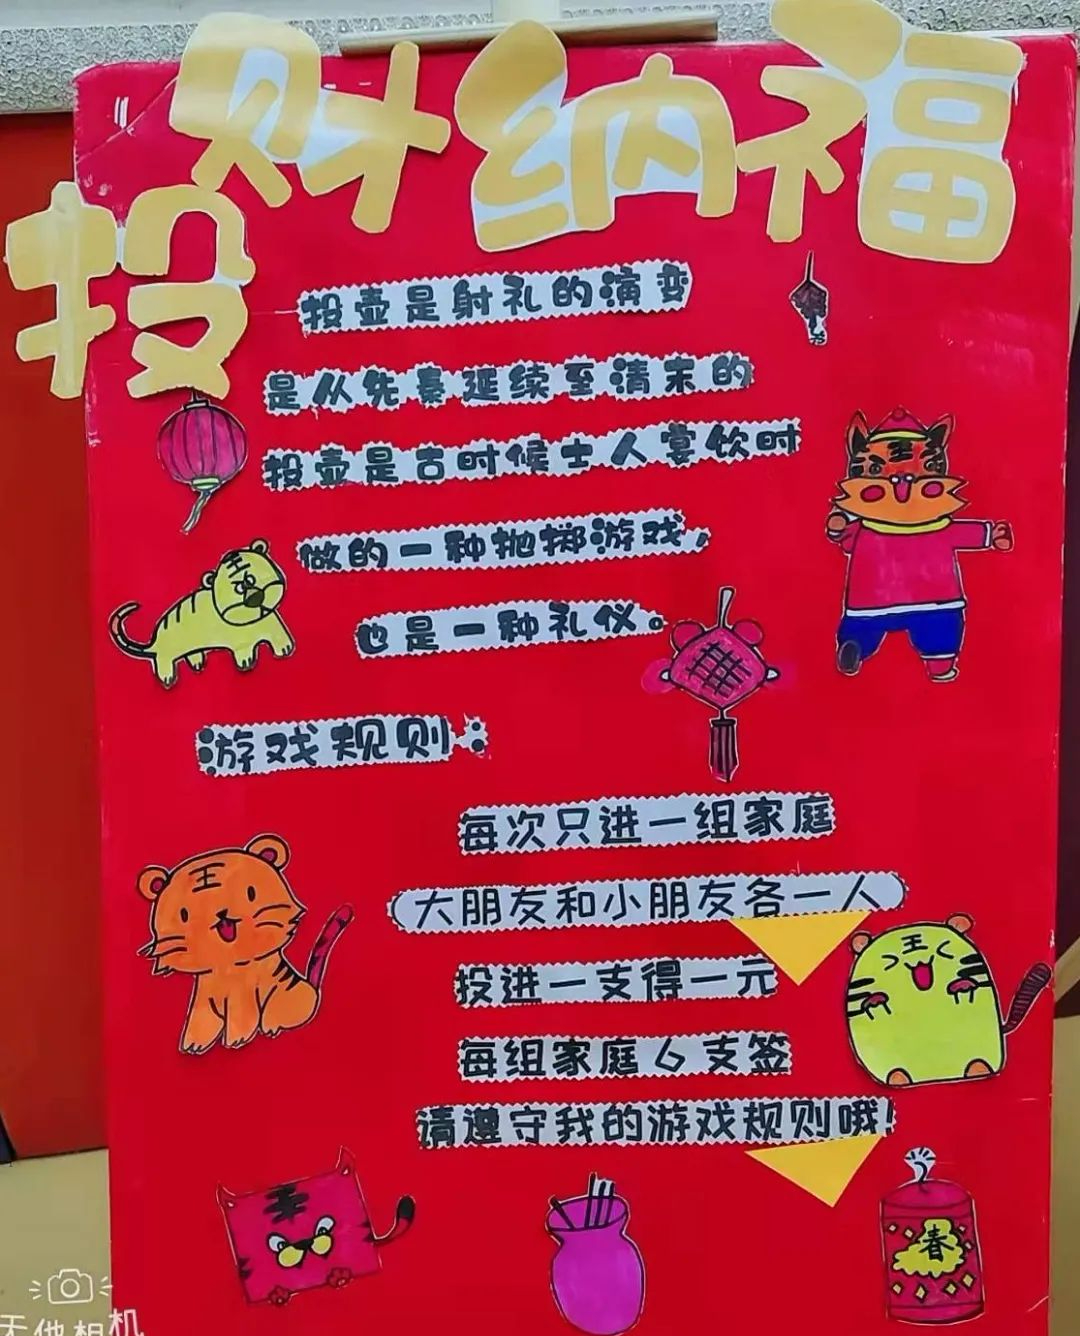 投财纳福
投壶是射礼的演变
是从先秦延续至清末的
投壶是古时候士人宴饮时
做的一种抛掷游戏,
也是一种礼仪。
游戏规则:
每次只进一组家庭
(大朋友和小朋友各一人)
投进一支得一元
每组家庭6支签
请遵守我的游戏规则哦!
王
王
王
王
春
天彻相机